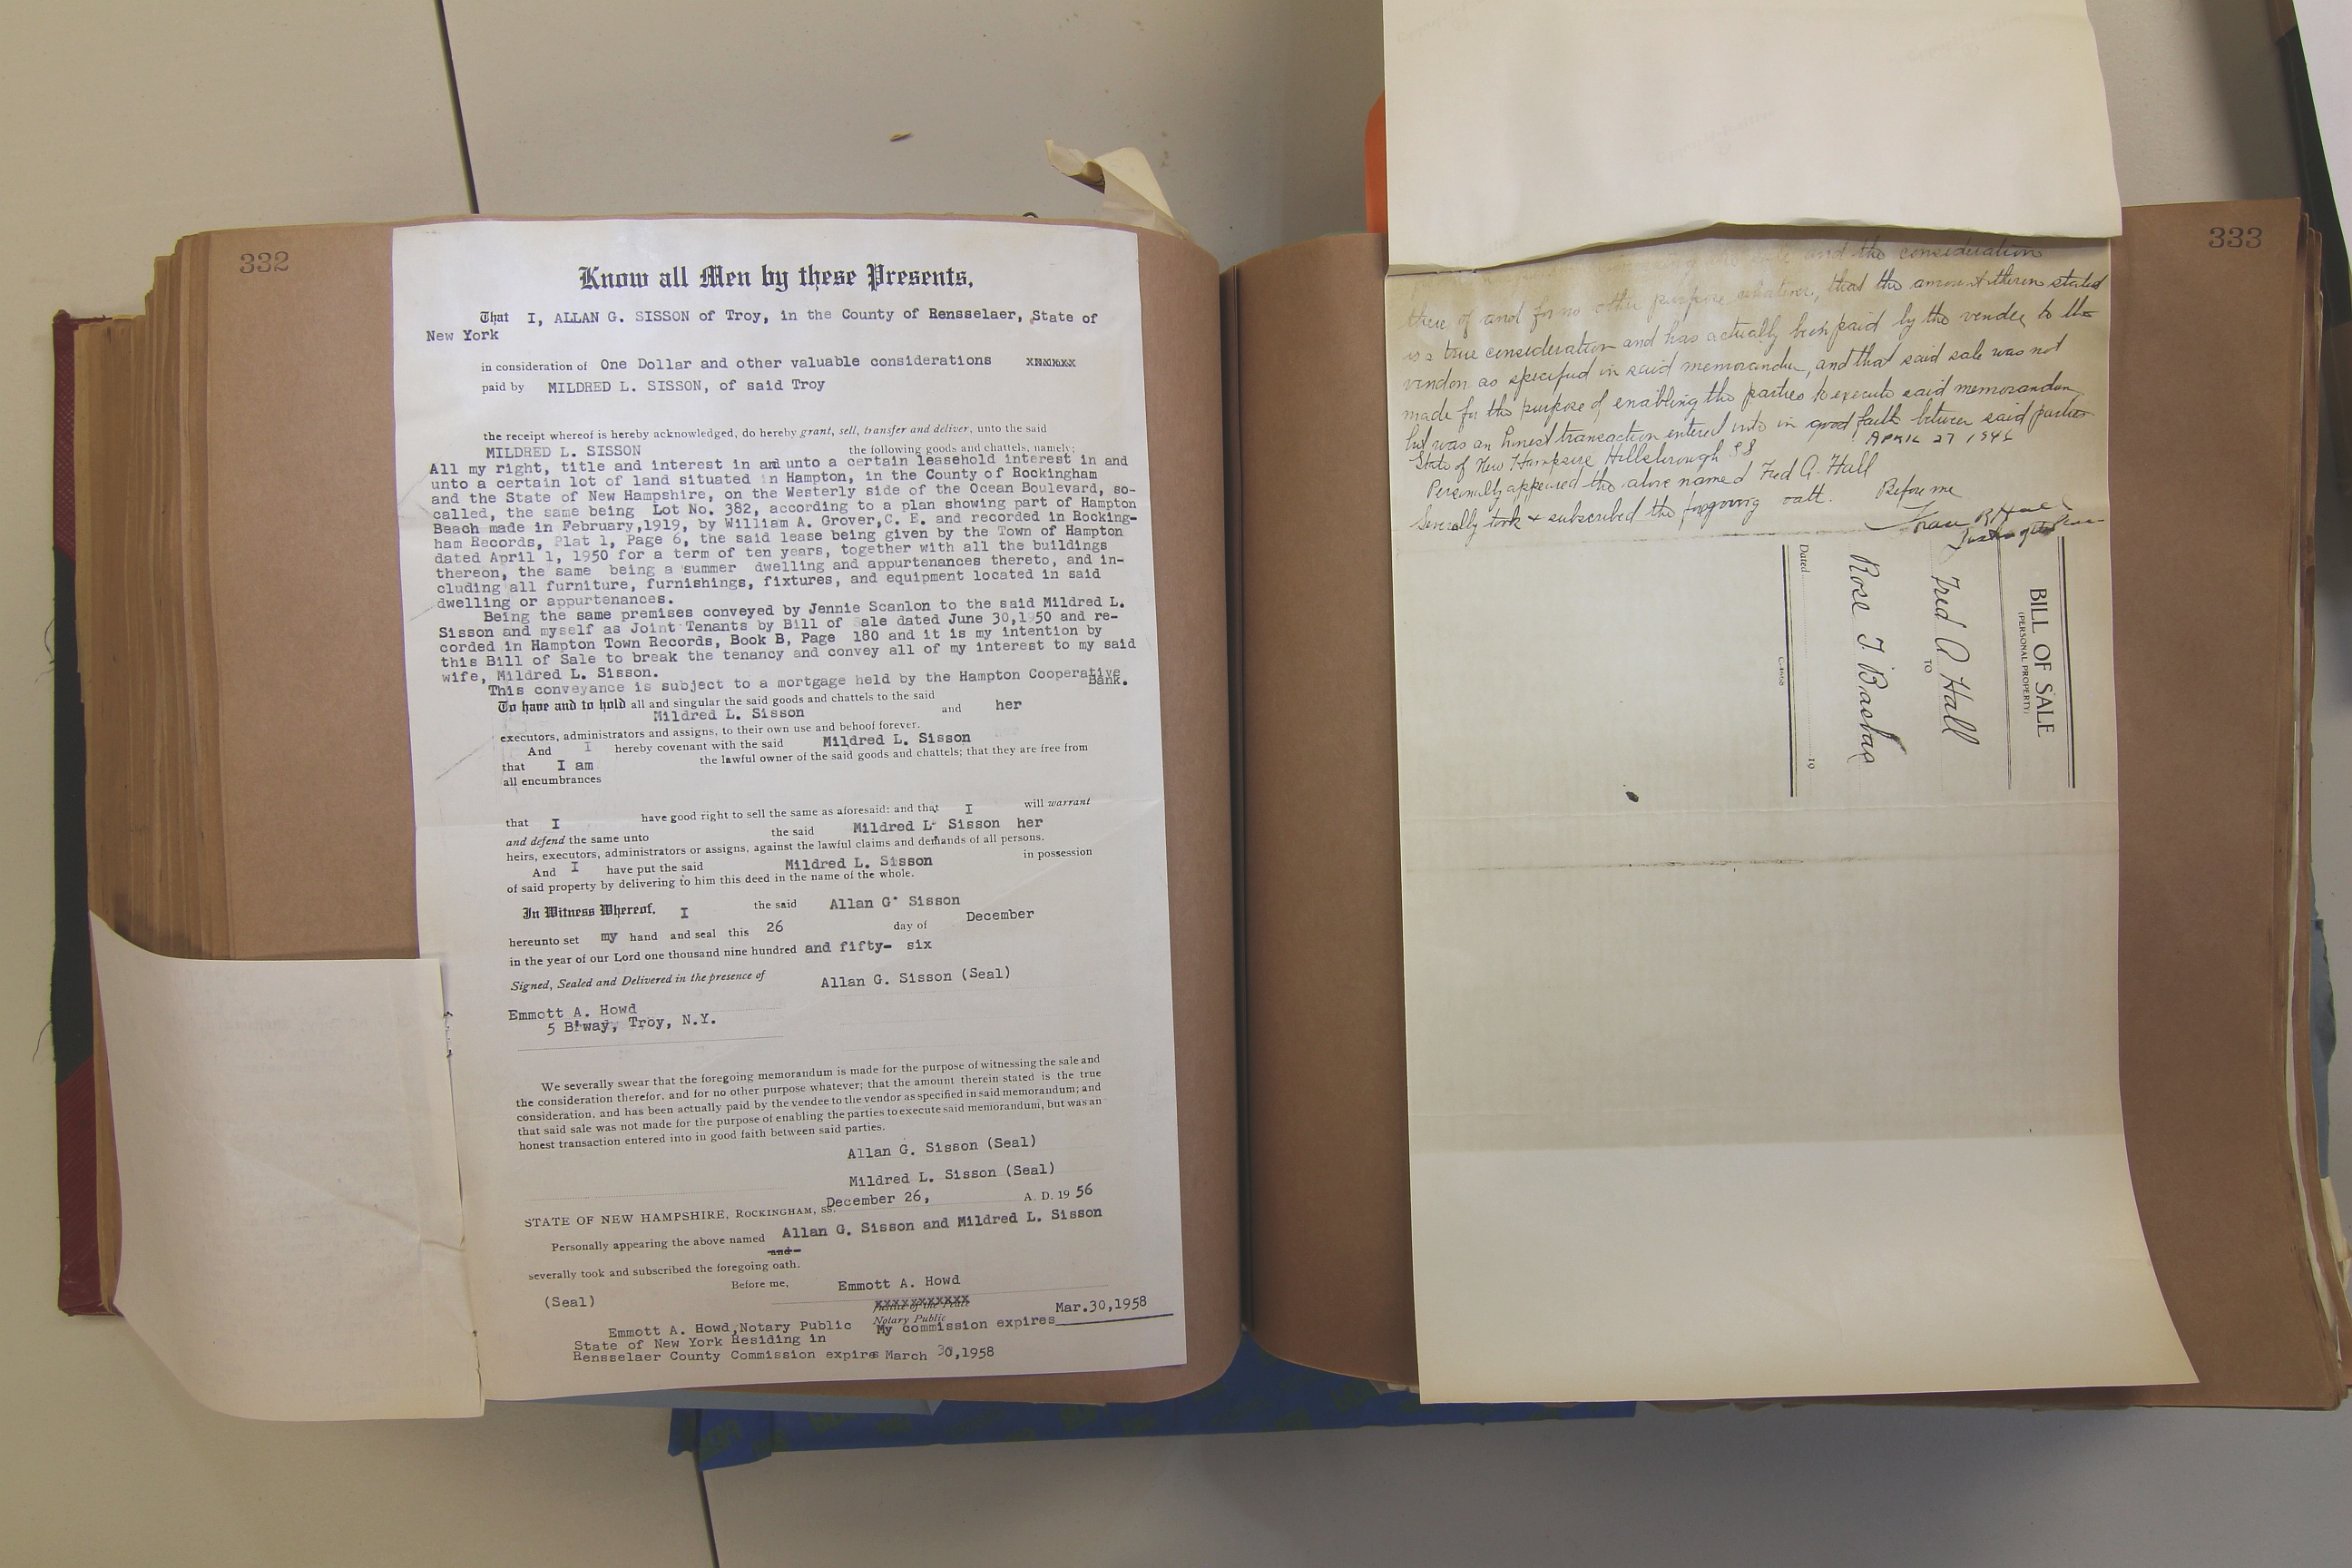 332
Know all Men by these Presents,
That I, ALLAN G. SISSON of Troy, in the County of Rensselaer, State of
New York
in consideration of One Dollar and other valuable considerations xxxxxx
paid by MILDRED L. SISSON, of said Troy
the receipt whereof is hereby acknowledged, do hereby grant, sell, transfer and deliver, unto the said
MILDRED L. SISSON the following goods and chattels, namely:
All my right, title and interest in and unto a certain leasehold interest in and
unto a certain lot of land situated in Hampton, in the County of Rockingham
and the State of New Hampshire, on the Westerly side of the Ocean Boulevard, so-
called, the same being Lot No. 382, according to a plan showing part of Hampton
Beach made in February,1919, by William A. Grover,C. E. and recorded in Rocking-
ham Records, Plat 1, Page 6, the said lease being given by the Town of Hampton
dated April 1, 1950 for a term of ten years, together with all the buildings
thereon, the same being a summer dwelling and appurtenances thereto, and in-
cluding all furniture, furnishings, fixtures, and equipment located in said
dwelling or appurtenances.
Being the same premises conveyed by Jennie Scanlon to the said Mildred L.
Sisson and myself as Joint Tenants by Bill of Sale dated June 30,1950 and re-
corded in Hampton Town Records, Book B, Page 180 and it is my intention by
this Bill of Sale to break the tenancy and convey all of my interest to my said
wife, Mildred L. Sisson.
This conveyance is subject to a mortgage held by the Hampton Cooperative
Bank.
To have and to hold all and singular the said goods and chattels to the said
Mildred L. Sisson and her
executors, administrators and assigns, to their own use and behoof forever.
And I hereby covenant with the said Mildred L. Sisson
that I am the lawful owner of the said goods and chattels; that they are free from
all encumbrances
that I have good right to sell the same as aforesaid: and that I will warrant
and defend the same unto the said Mildred L. Sisson her
heirs, executors, administrators or assigns, against the lawful claims and demands of all persons.
And I have put the said Mildred L. Sisson in possession
of said property by delivering to him this deed in the name of the whole.
In Witness Whereof, I the said Allan G. Sisson
hereunto set my hand and seal this 26 day of December
in the year of our Lord one thousand nine hundred and fifty- six
Signed, Sealed and Delivered in the presence of
Allan G. Sisson (Seal)
Emmott A. Howd
5 B'way, Troy, N.Y.
We severally swear that the foregoing memorandum is made for the purpose of witnessing the sale and
the consideration therefor, and for no other purpose whatever; that the amount therein stated is the true
consideration, and has been actually paid by the vendee to the vendor as specified in said memorandum; and
that said sale was not made for the purpose of enabling the parties to execute said memorandum, but was an
honest transaction entered into in good faith between said parties.
Allan G. Sisson (Seal)
Mildred L. Sisson (Seal)
December 26, A. D. 19 56
STATE OF NEW HAMPSHIRE, ROCKINGHAM, SS.
Personally appearing the above named Allan G. Sisson and Mildred L. Sisson
and
severally took and subscribed the foregoing oath.
Before me, Emmott A. Howd
(Seal)
xxxxxxxxxxx
Justice of the Peace
Notary Public
Emmott A. Howd,Notary Public My commission expires Mar.30,1958
State of New York Residing in
Rensselaer County Commission expires March 30,1958
333
and the consideration
there of and for no other purpose whatever, that the amount therein stated
is a true consideration and has actually been paid by the vendee to the
vendor as specified in said memorandum, and that said sale was not
made for the purpose of enabling the parties to execute said memorandum
but was an honest transaction entered into in good faith between said parties
APRIL 27
State of New Hampshire Hillsborough SS
Personally appeared the above named Fred A. Hall
Severally took & subscribed the foregoing oath. Before me
BILL OF SALE
(PERSONAL PROPERTY)
Fred A Hall
TO
Rose T.
Dated 19